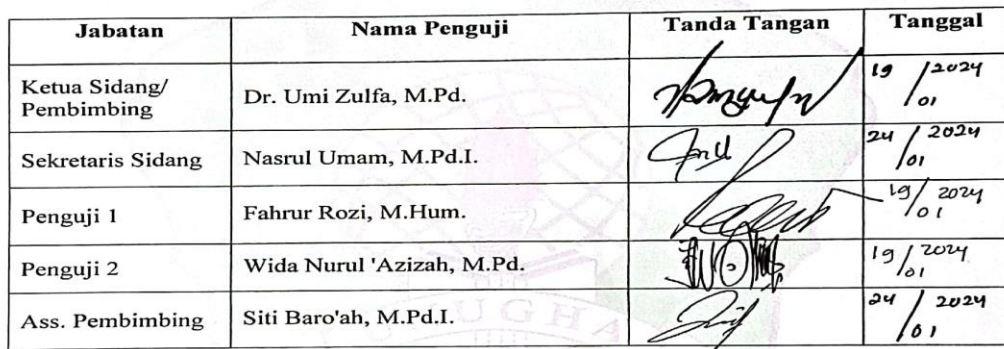 Jabatan Nama Penguji Tanda Tangan Tanggal
Ketua Sidang/
Pembimbing Dr. Umi Zulfa, M.Pd. 19/01 2024
Sekretaris Sidang Nasrul Umam, M.Pd.I. 24/01 2024
Penguji 1 Fahrur Rozi, M.Hum. 19/01 2024
Penguji 2 Wida Nurul 'Azizah, M.Pd. 19/01 2024
Ass. Pembimbing Siti Baro'ah, M.Pd.I. 24/01 2024